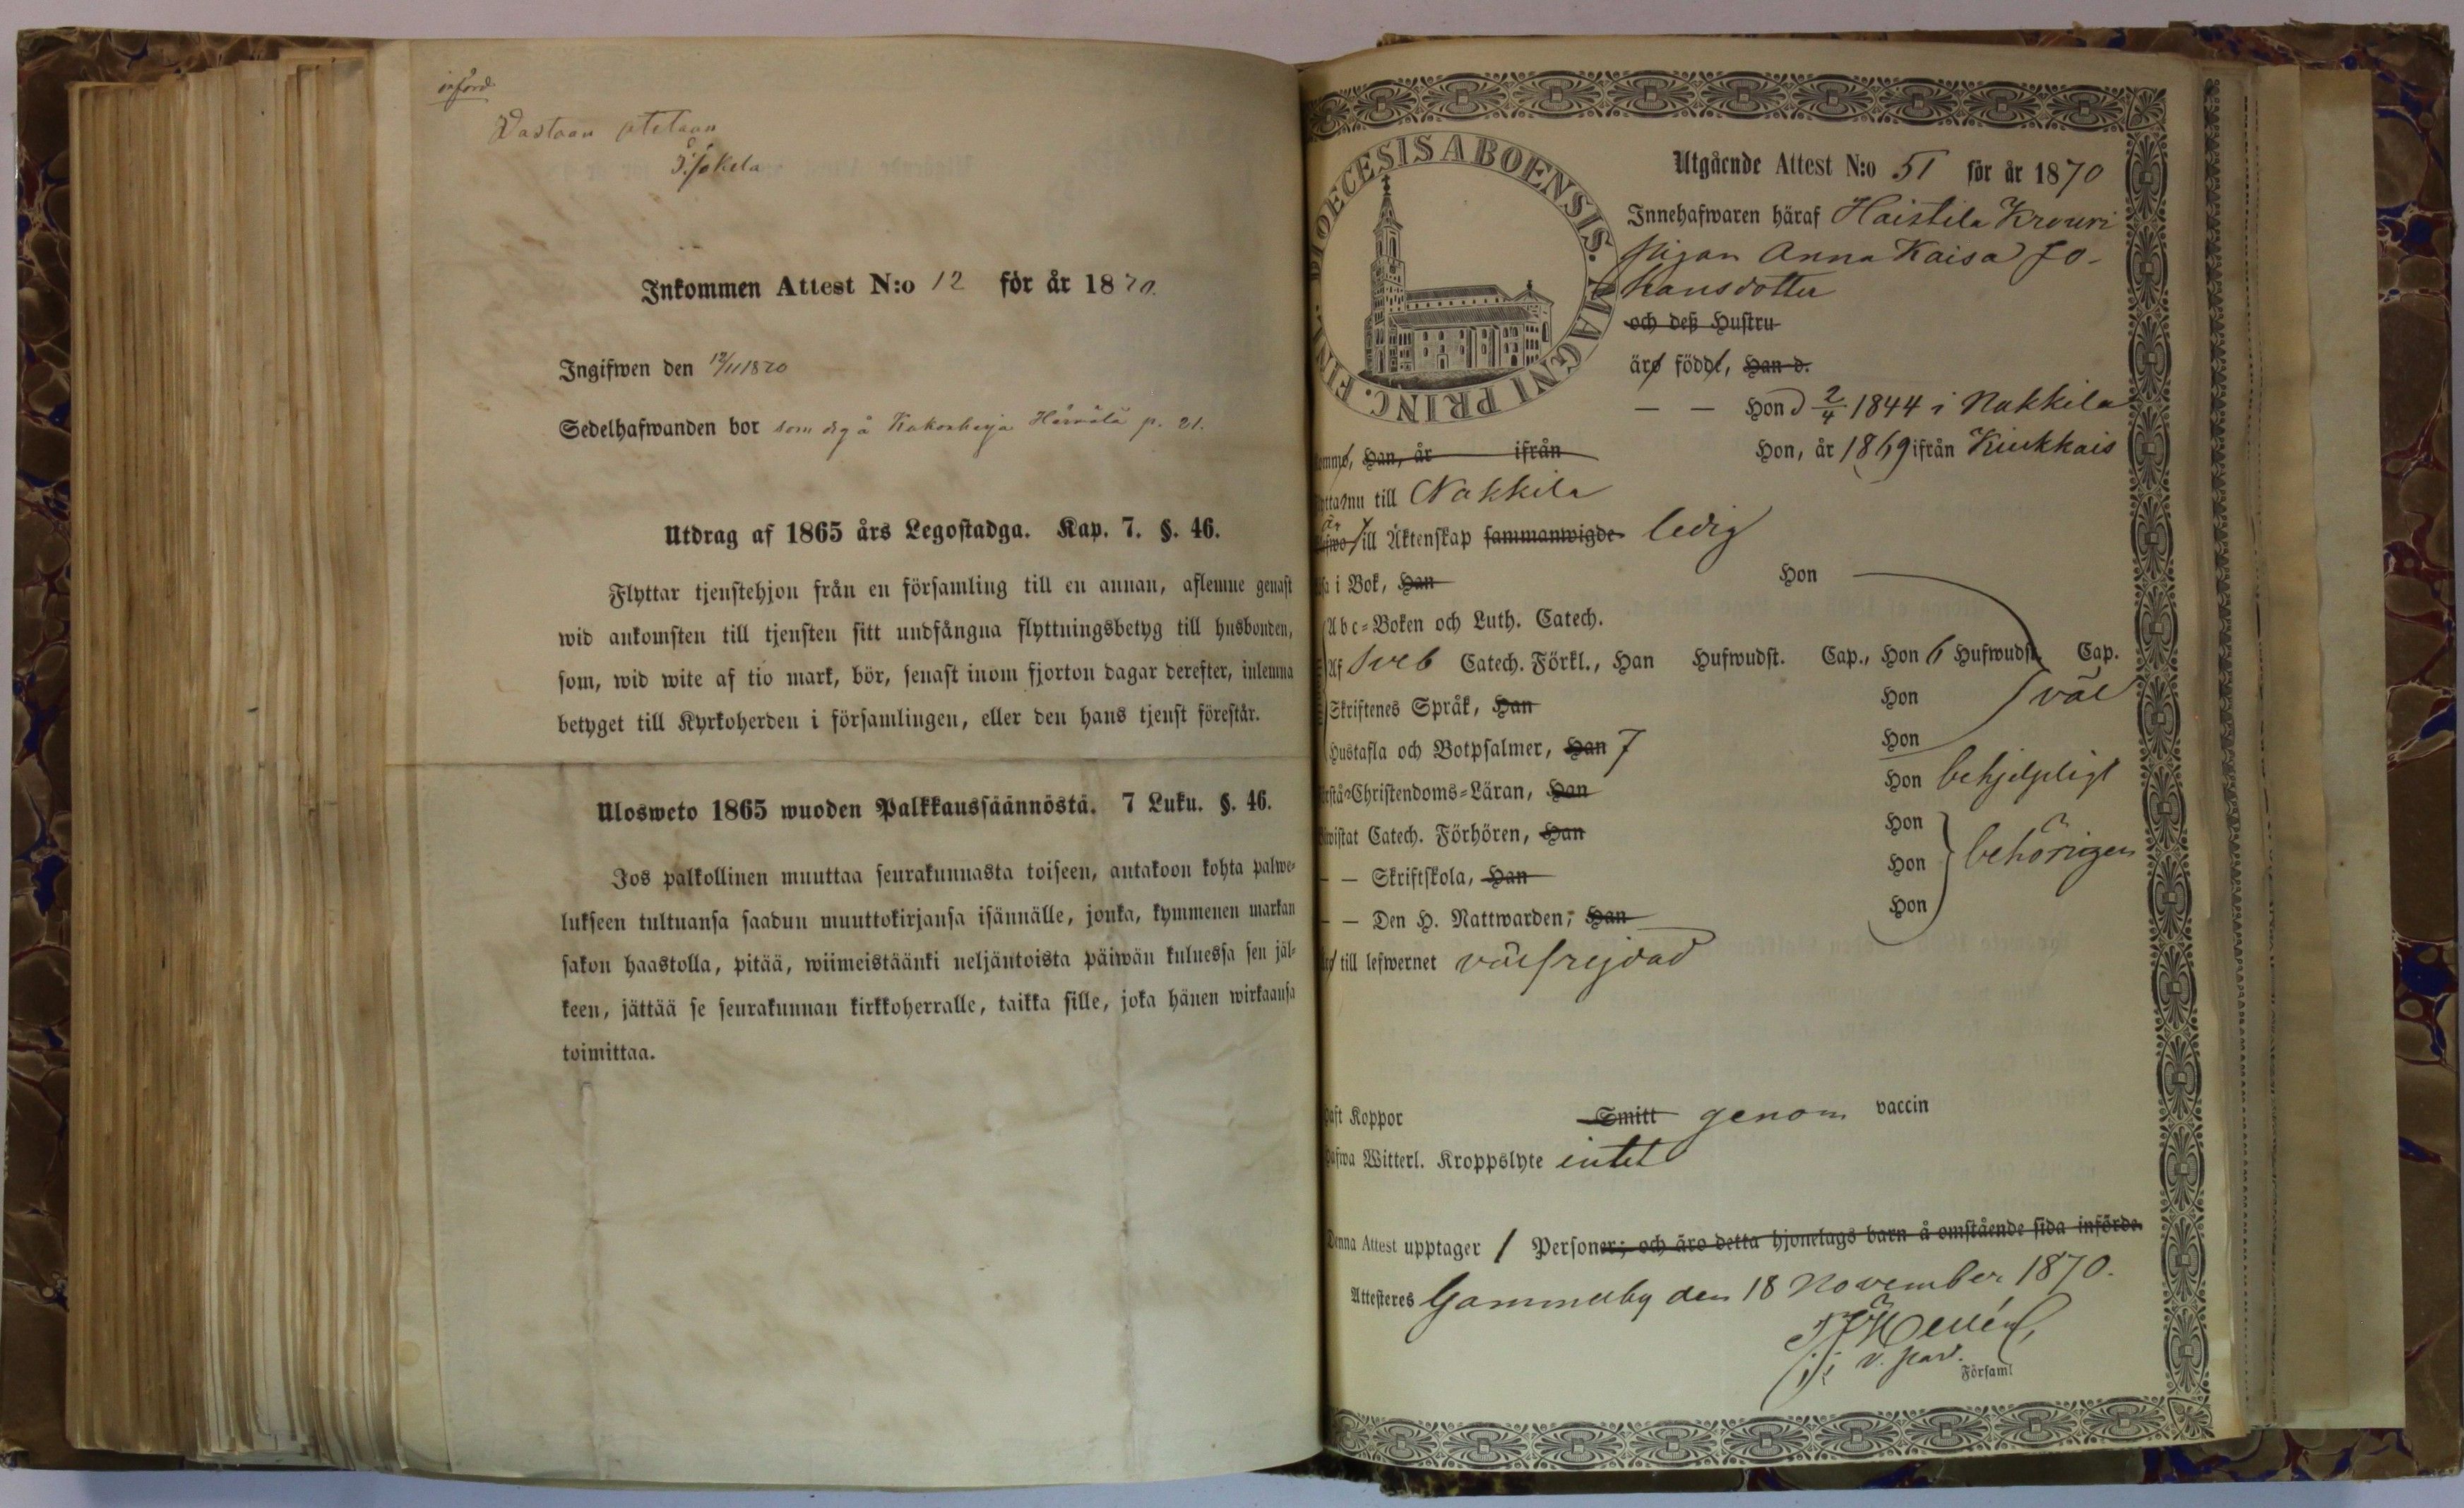 införd
Vastaan otetaan
Jokela
Inkommen Attest N:o 12 för år 1870.
Ingifwen den 12/11 1870
Sedelhafwanden bor som drg å p. 21.
Utdrag af 1865 års Legostadga. Kap. 7. §. 46.
Flyttar tjenstehjon från en församling till en annan, aflemne genast
wid ankomsten till tjensten sitt undfångna flyttningsbetyg till husbonden,
som, wid wite af tio mark, bör, senast inom fjorton dagar derefter, inlemna
betyget till Kyrkoherden i församlingen, eller den hans tjenst förestår.
Ulosweto 1865 wuoden Palkkaussäännöstä. 7 Luku. §. 46.
Jos palkollinen muuttaa seurakunnasta toiseen, antakoon kohta palwe=
lukseen tultuansa saadun muuttokirjansa isännälle, jonka, kymmenen markan
sakon haastolla, pitää, wiimeistäänki neljäntoista päiwän kuluessa sen jäl=
keen, jättää se seurakunnan kirkkoherralle, taikka sille, joka hänen wirkaansa
toimittaa.
DIOECESIS ABOENSIS. MAGNI PRINC. FINL.
Utgående Attest N:o 51 för år 1870
Innehafwaren häraf Haistila Krouvi
pigan Anna Kaisa Jo-
hansdotter
och deß Hustru
äro född, Han d.
— — Hon d 2/4 1844 i Nakkila
Han, år ifrån Hon, år 1869 ifrån Kiukkais
nu till Nakkila
är till Äktenskap sammanwigde ledig
i Bok, Han Hon
Abc=Boken och Luth. Catech.
Af Sveb Catech. Förkl., Han Hufwudst. Cap., Hon 6 Hufwudst. Cap.
Skriftenes Språk, Han Hon väl
Hustafla och Botpsalmer, Han 7 Hon
Christendoms=Läran, Han Hon behjelpligt
Catech. Förhören, Han Hon
— — Skriftskola, Han Hon behörigen
— — Den H. Nattwarden, Han Hon
till lefwernet välfrejdad
Koppor Smitt genom vaccin
Witterl. Kroppslyte intet
Denna Attest upptager 1 Personer; och äro detta hjonelags barn å omstående sida införde.
Attesteres Gammelby den 18 November 1870.
Hellén
v. past.
Församl